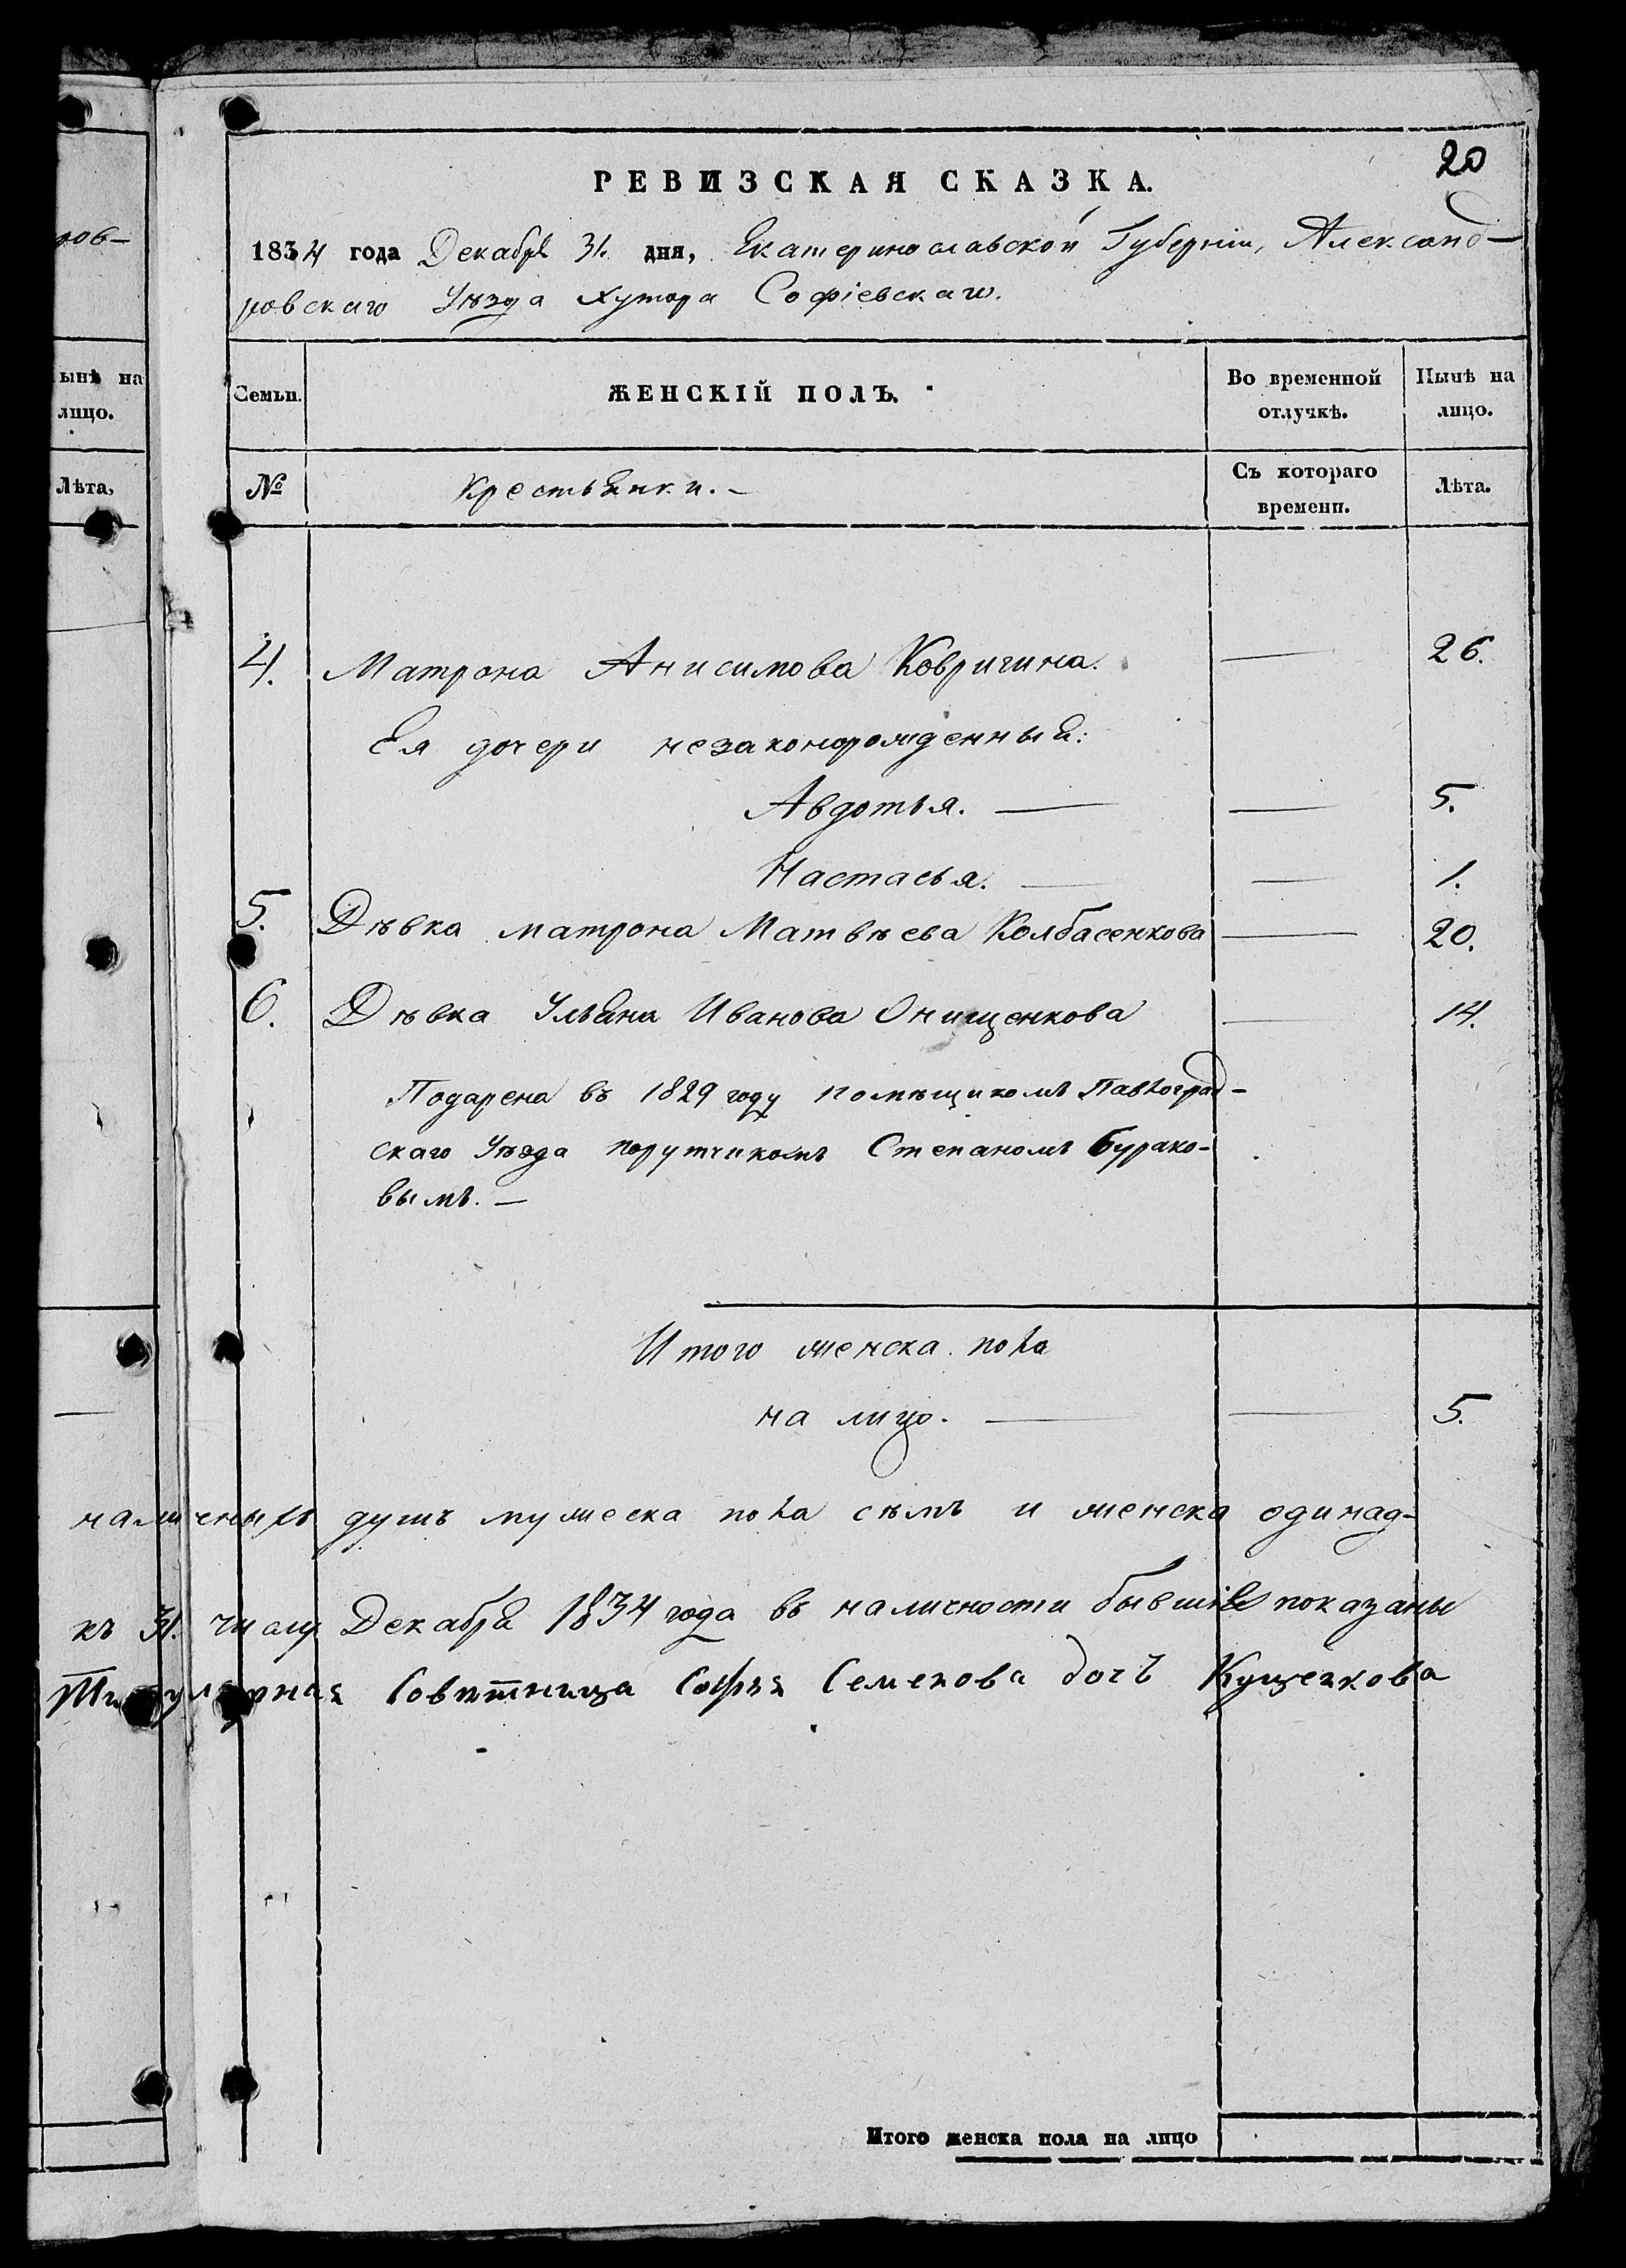 20
РЕВИЗСКАЯ СКАЗКА.
1834 года Декабря 31. дня, Екатеринославской Губерніи, Александ-
ровскаго Уѣзда Хутора Софіевскаго.
ров-
ынѣ на
лицо.
Лѣта,
Семьи. ЖЕНСКІЙ ПОЛЪ. Во временной отлучкѣ. Нынѣ на лицо.
№ Крестьянки. - Съ котораго времени. Лѣта.
4. Матрона Анисимова Ковригина. — 26.
Ея дочери незаконорожденныя:
Авдотья. — — 5.
Настасья. — — 1.
5. Дѣвка Матрона Матвѣева Колбасенкова — 20.
6. Дѣвка Ульяна Иванова Онищенкова — 14.
Подарена въ 1829 году помѣщикомъ Павлоград-
скаго Уѣзда порутчикомъ Степаномъ Бурако-
вымъ. —
Итого женска пола
на лицо. — — 5.
наличныхъ душъ мужеска пола сѣмъ и женска одинад-
къ 31. числу Декабря 1834 года въ наличности бывшіе показаны
Титулярная Совѣтница Софья Семенова дочь Куценкова
Итого женска пола на лицо